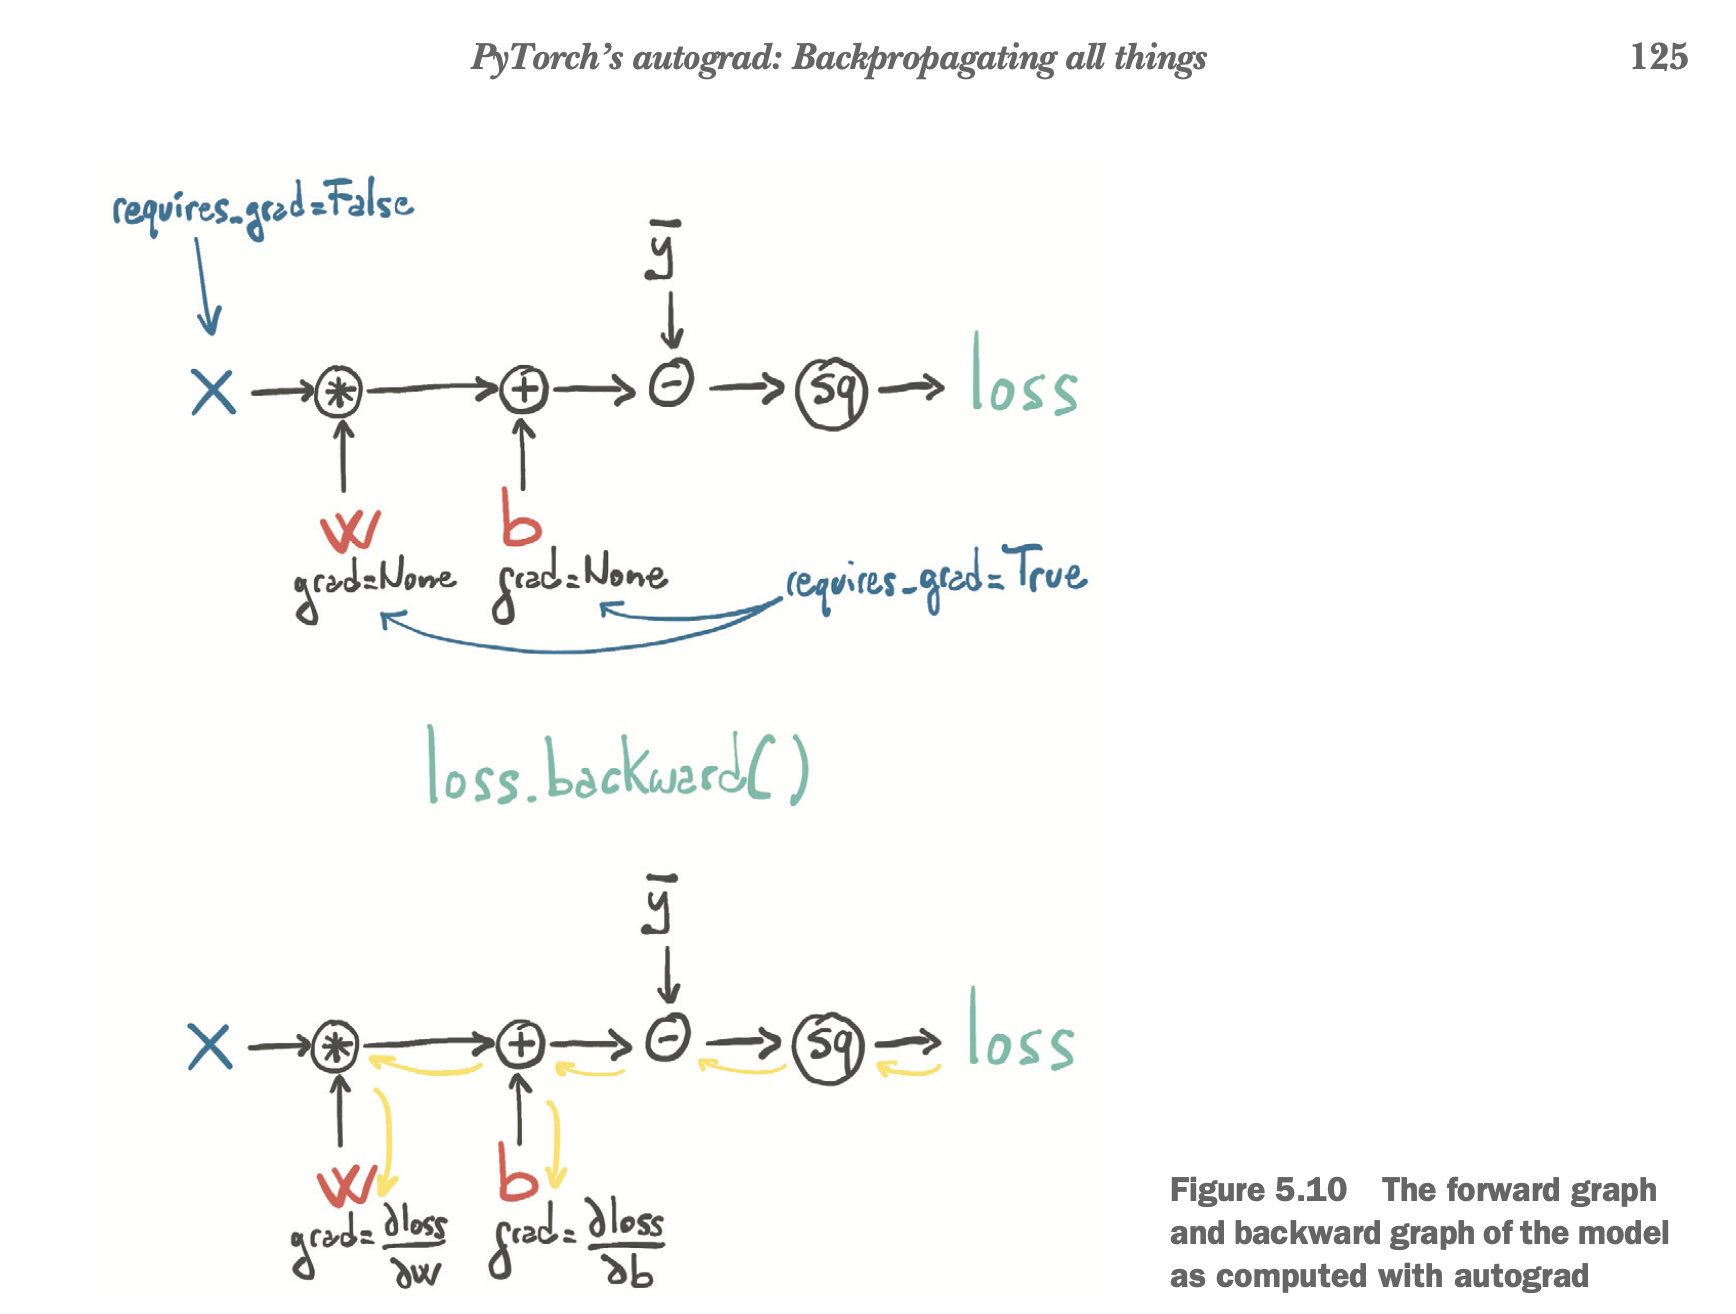 PyTorch's autograd: Backpropagating all things 125
requires_grad=False
ȳ
X * + - sq loss
w b
grad=None grad=None requires_grad=True
loss.backward()
ȳ
X * + - sq loss
w b
grad=∂loss/∂w grad=∂loss/∂b
Figure 5.10 The forward graph
and backward graph of the model
as computed with autograd